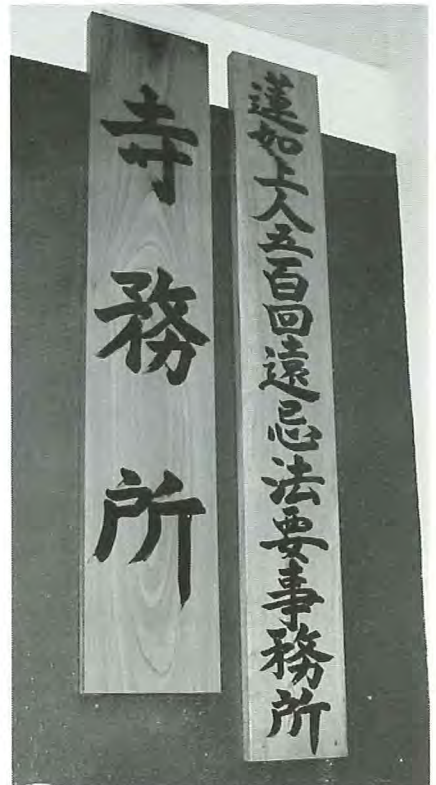 蓮如上人五百回遠忌法要事務所
寺務所